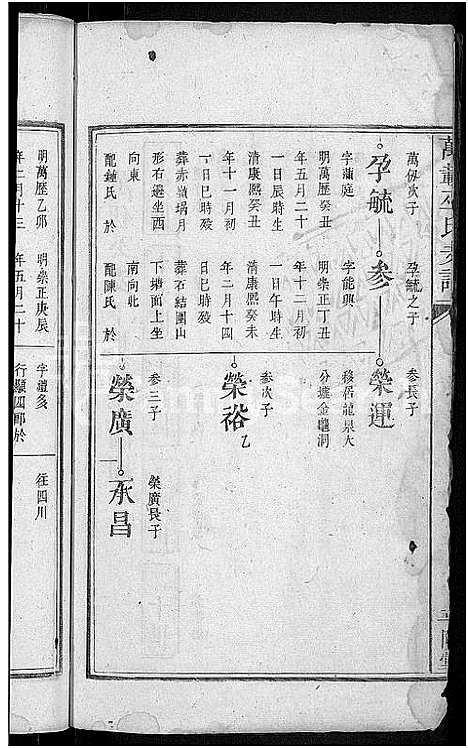 萬份次子
孕毓
字蒲庭
明萬歷癸丑
年五月二十
一日辰時生
清康熙癸丑
年十一月初
一日巳時殁
葬赤嶺堝月
形右邊坐西
向東
配鍾氏 於
孕毓之子
參
字能興
明崇正丁丑
年十二月初
一日午時生
清康熙癸未
年二月十四
日巳時殁
葬石結圍山
下塘面上坐
南向北
配陳氏 於
參長子
榮運
移居龍泉大
分壚金龜洞
參次子
榮裕
乙
參三子
榮廣
榮廣長子
承昌
明萬歷乙卯
年二月十三
明崇正庚辰
年五月二十
字禮多
行顯四郎於
往四川